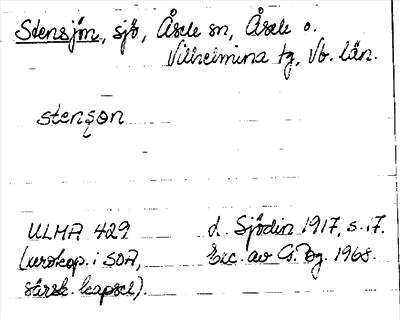 Stensjön, sjö, Åsele sn, Åsele o.
Vilhelmina tg, Vb. län.
stenşon
ULMA 429
(avskop. i SOA,
särsk. kapsel).
d. Sjödin 1917, s. 17.
Exc. av G. Bg. 1968.